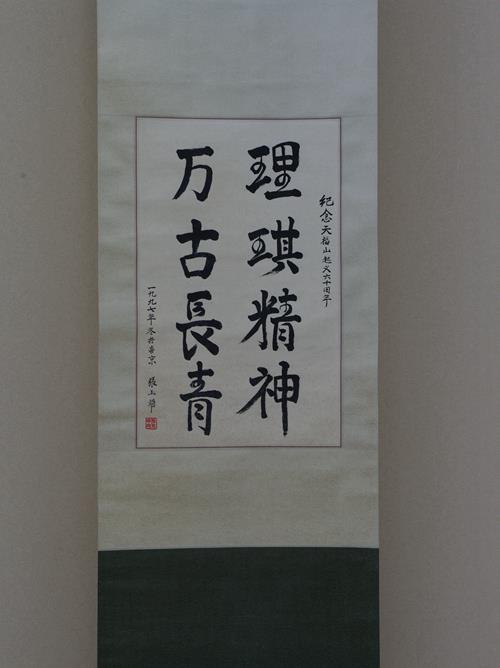 纪念天福山起义六十周年
理琪精神
万古長青
一九九七年冬於北京 張玉華